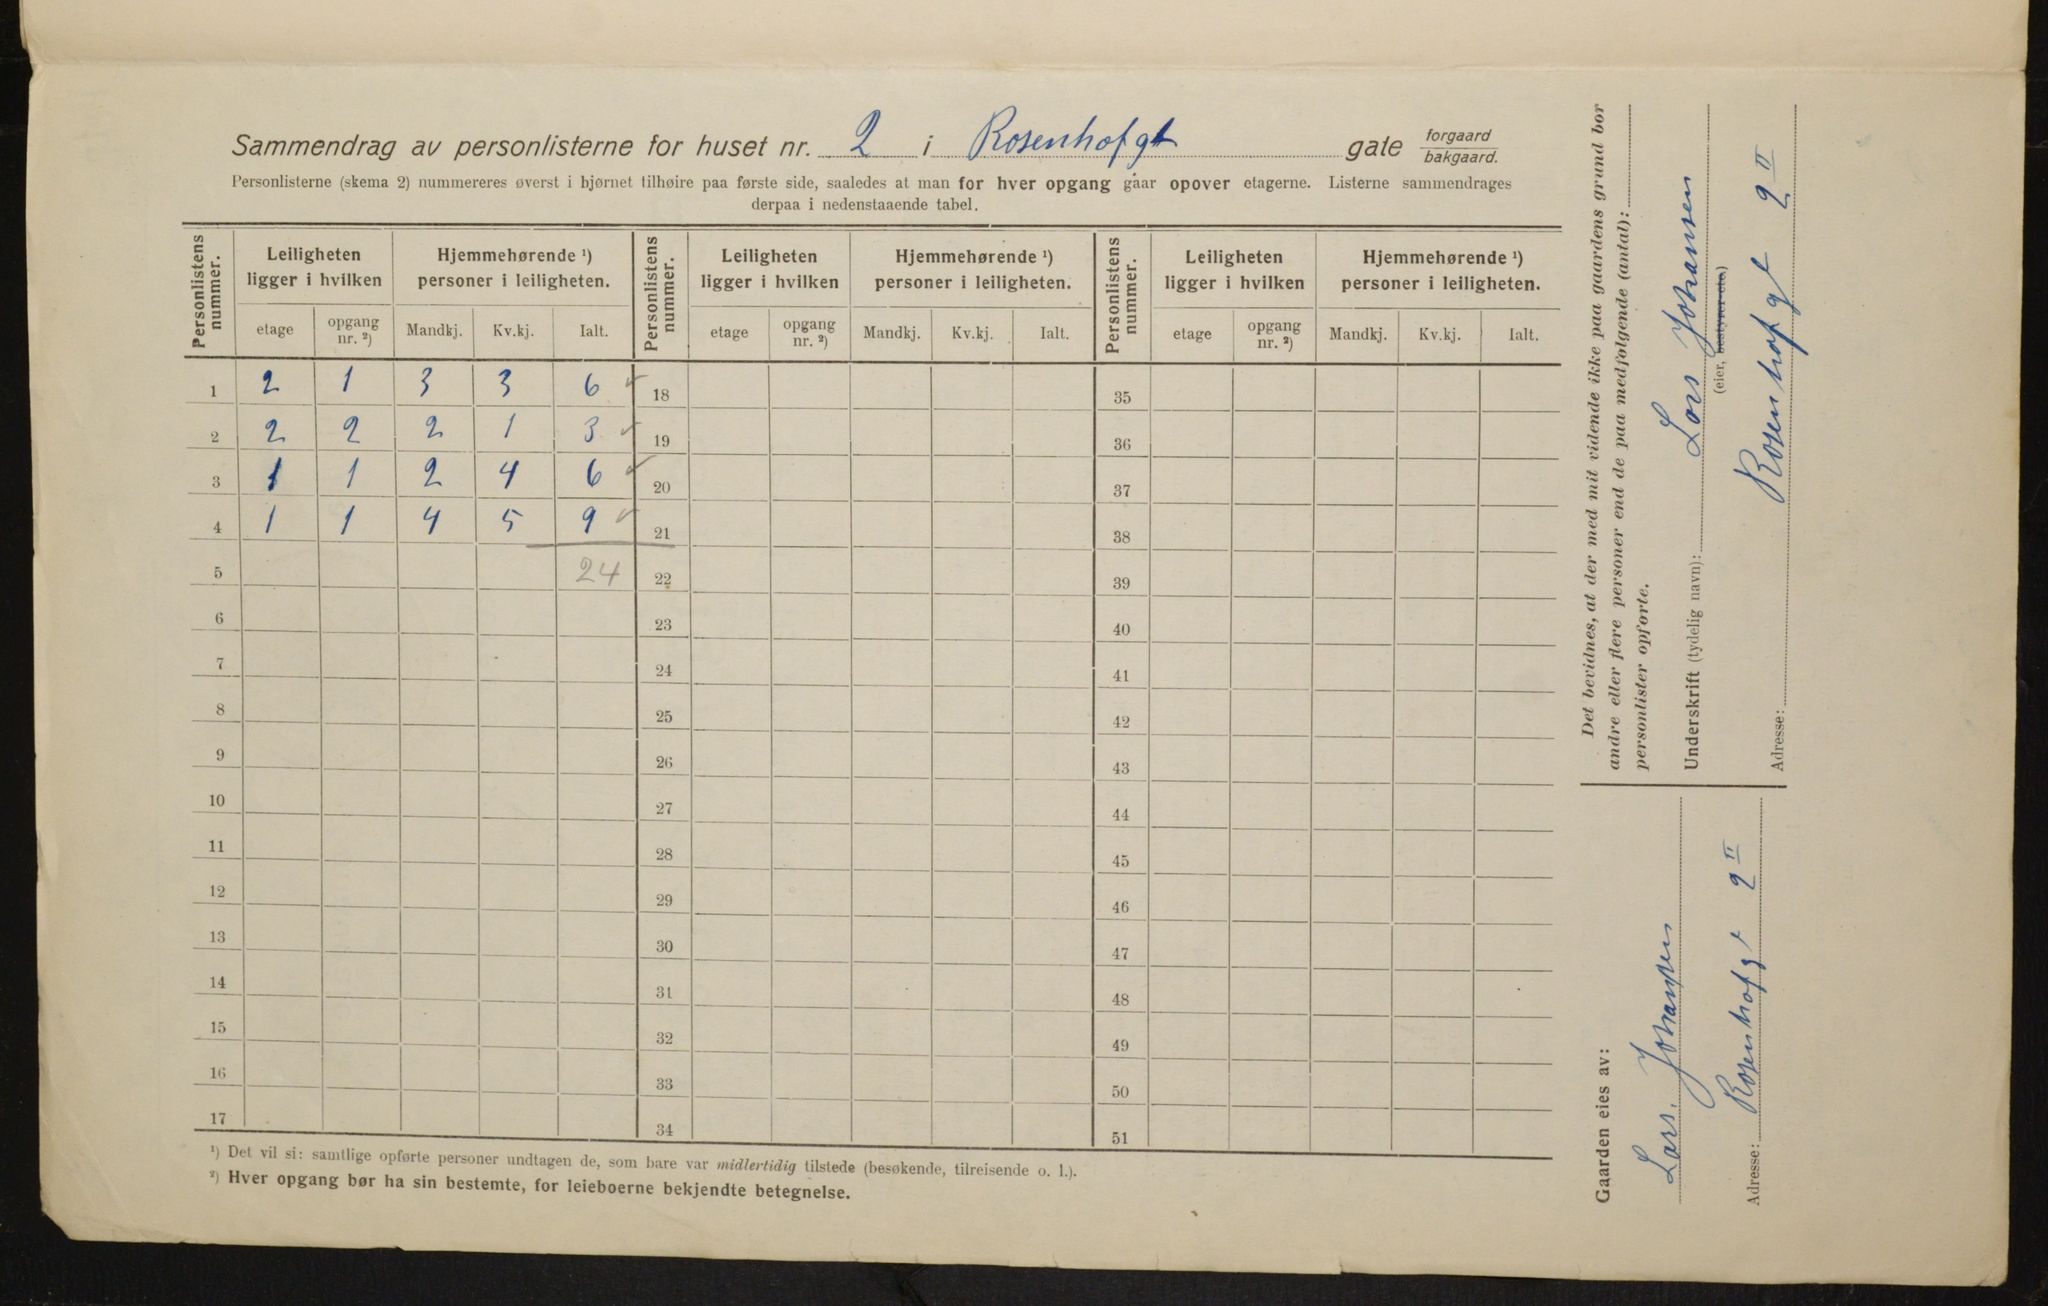 Sammendrag av personlisterne for huset nr. 2 i Rosenhofgt gate forgaard bakgaard.
Personlisterne (skema 2) nummereres øverst i hjørnet tilhøire paa første side, saaledes at man for hver opgang gaar opover etagerne. Listerne sammendrages
derpaa i nedenstaaende tabel.
Personlistens nummer. Leiligheten ligger i hvilken Hjemmehørende ¹) personer i leiligheten. Personlistens nummer. Leiligheten ligger i hvilken Hjemmehørende ¹) personer i leiligheten. Personlistens nummer. Leiligheten ligger i hvilken Hjemmehørende ¹) personer i leiligheten.
etage opgang nr. ²) Mandkj. Kv.kj. Ialt. etage opgang nr. ²) Mandkj. Kv.kj. Ialt. etage opgang nr. ²) Mandkj. Kv.kj. Ialt.
1 2 1 3 3 6 ✓ 18 35
2 2 2 2 1 3 ✓ 19 36
3 1 1 2 4 6 ✓ 20 37
4 1 1 4 5 9 ✓ 21 38
5 24 22 39
6 23 40
7 24 41
8 25 42
9 26 43
10 27 44
11 28 45
12 29 46
13 30 47
14 31 48
15 32 49
16 33 50
17 34 51
¹) Det vil si: samtlige opførte personer undtagen de, som bare var midlertidig tilstede (besøkende, tilreisende o. l.).
²) Hver opgang bør ha sin bestemte, for leieboerne bekjendte betegnelse.
Det bevidnes, at der med mit vidende ikke paa gaardens grund bor
andre eller flere personer end de paa medfølgende (antal):
personlister opførte.
Underskrift (tydelig navn): Lars Johansen
(eier, bestyrer etc.)
Adresse: Rosenhofgt 2 II
Gaarden eies av:
Lars. Johansen
Adresse: Rosenhofgt 2 II